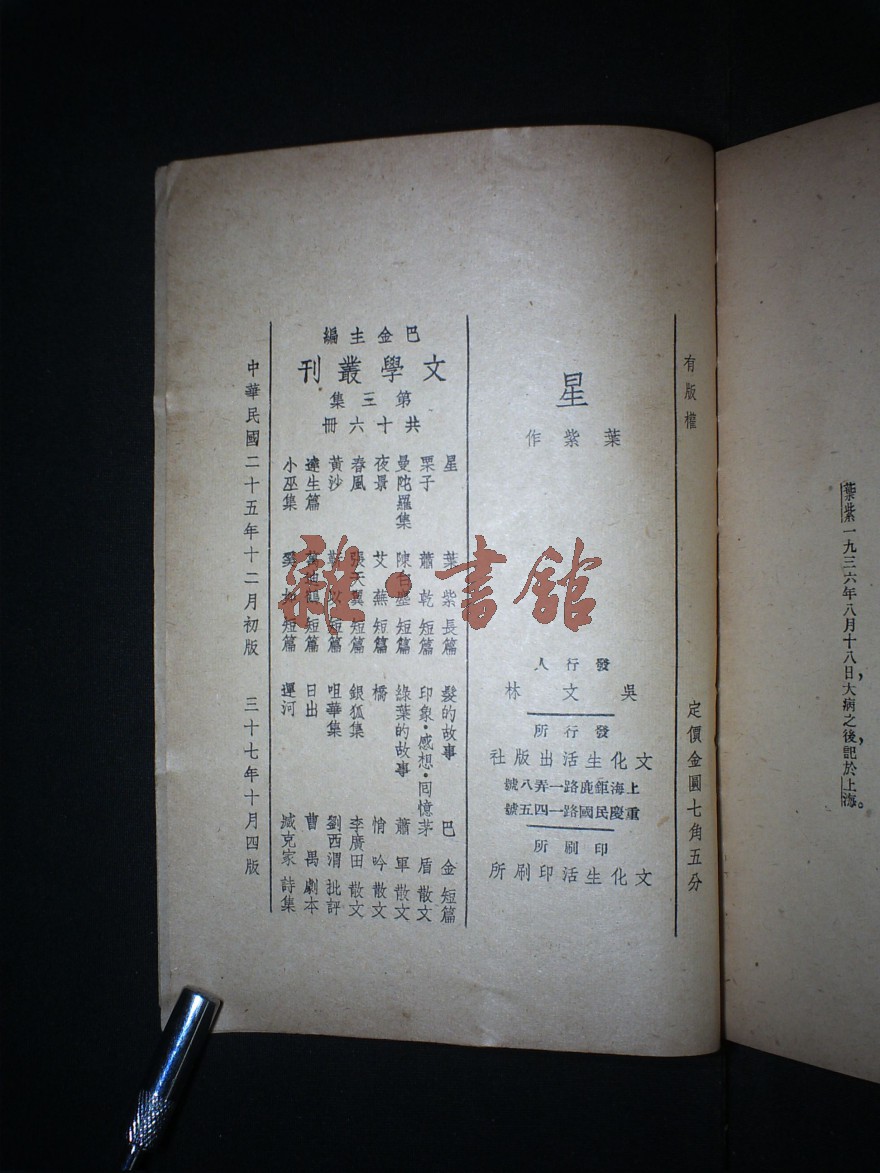 葉紫一九三六年八月十八日,大病之後,記於上海。
有版權
定價金圓七角五分
星
葉紫作
發行人
吳文林
發行所
文化生活出版社
上海鉅鹿路一弄八號
重慶民國路一四五號
印刷所
文化生活印刷所
巴金主編
文學叢刊
第三集
共十六冊
星 葉紫 長篇
栗子 蕭乾 短篇
曼陀羅集 陳白塵 短篇
夜景 艾蕪 短篇
春風 張天翼 短篇
黃沙 靳以 短篇
達生篇 萬迪鶴 短篇
小巫集 奚如 短篇
髮的故事 巴金 短篇
印象・感想・回憶 茅盾 散文
綠葉的故事 蕭軍 散文
橋 悄吟 散文
銀狐集 李廣田 散文
咀華集 劉西渭 批評
日出 曹禺 劇本
運河 臧克家 詩集
中華民國二十五年十二月初版
三十七年十月四版
雜・書館